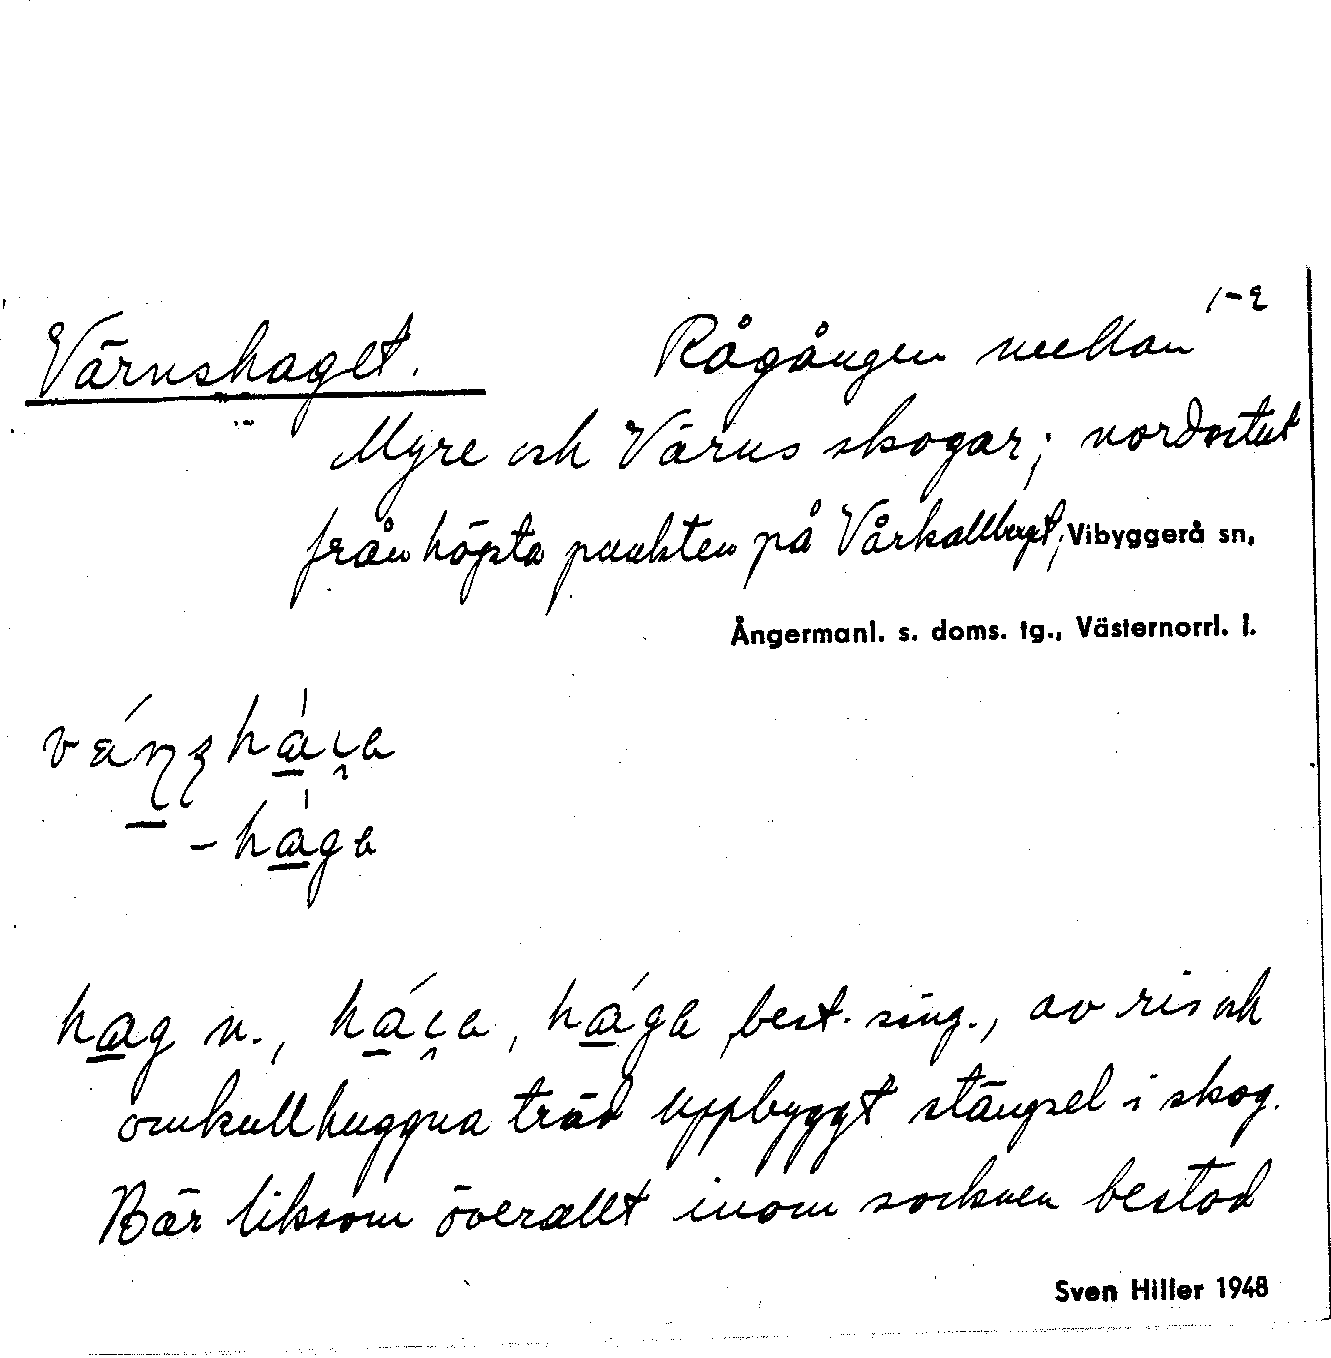 1-2
Värnshaget. Rågången mellan
Myre och Värns skogar; nordostut
från högsta punkten på Vårkallberget, Vibyggerå sn,
Ångermanl. s. doms. tg., Västernorrl. l.
hag n., best. sing., av ris och
omkullhuggna träd uppbyggt stängsel i skog.
Bär liksom överallt inom socknen bestod
Sven Hiller 1948